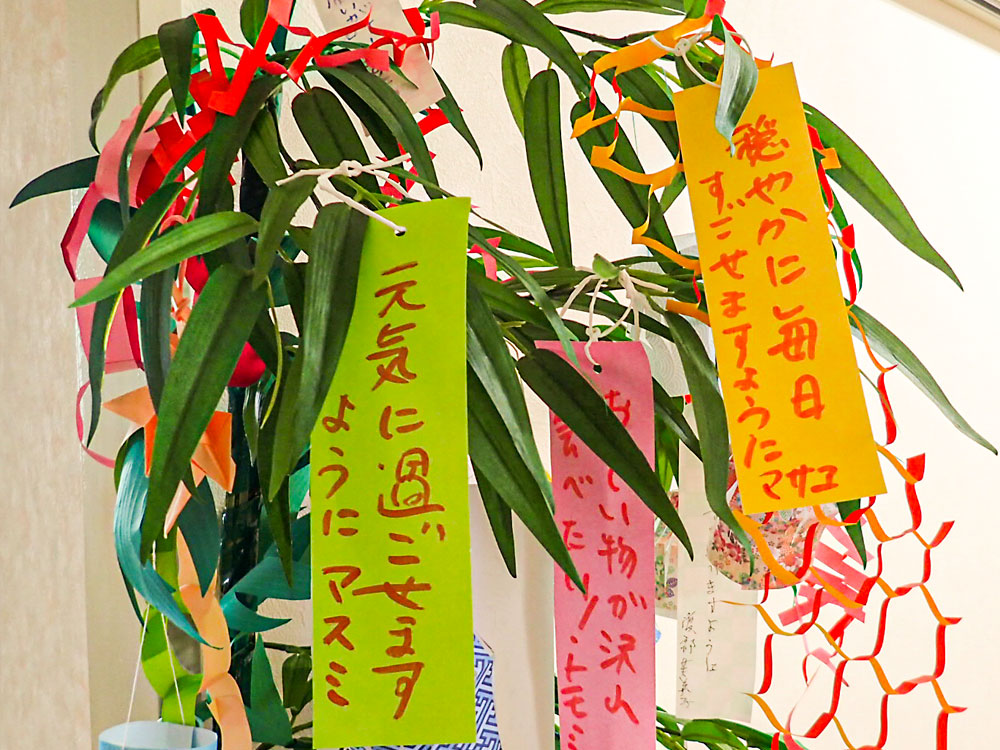 穏やかに毎日
すごせますように
マサユ
元気に過ごせます
ように アスミ
おいしい物が沢山
食べたい!トモミ
ますように